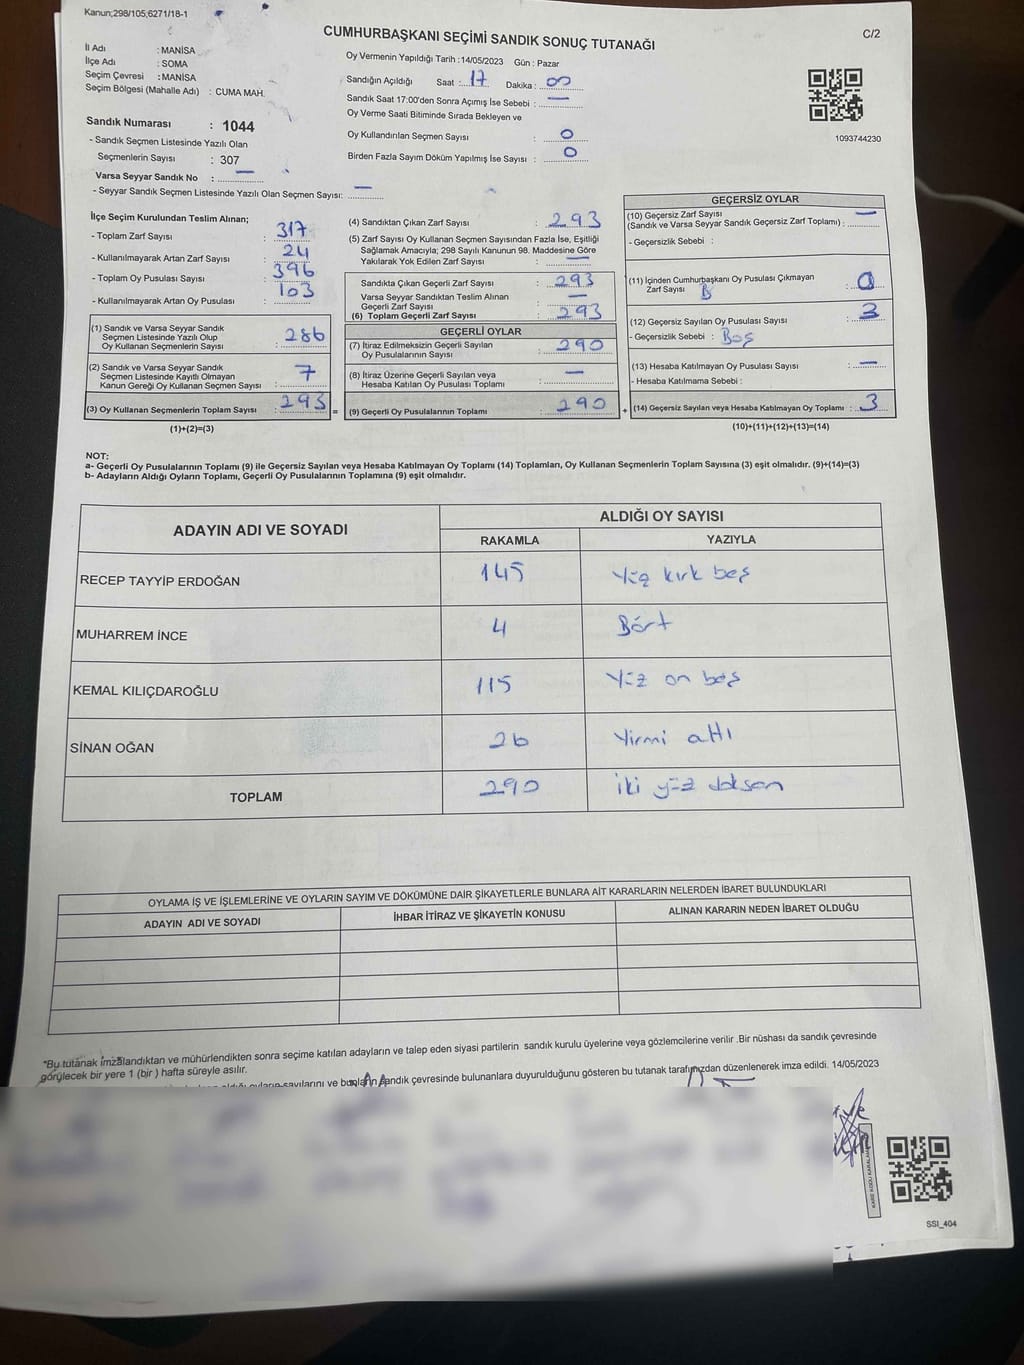 Kanun;298/105;6271/18-1
CUMHURBAŞKANI SEÇİMİ SANDIK SONUÇ TUTANAĞI
C/2
İl Adı : MANİSA
İlçe Adı : SOMA
Seçim Çevresi : MANİSA
Seçim Bölgesi (Mahalle Adı) : CUMA MAH.
Sandık Numarası : 1044
- Sandık Seçmen Listesinde Yazılı Olan
Seçmenlerin Sayısı : 307
Varsa Seyyar Sandık No : —
- Seyyar Sandık Seçmen Listesinde Yazılı Olan Seçmen Sayısı: —
Oy Vermenin Yapıldığı Tarih :14/05/2023 Gün : Pazar
Sandığın Açıldığı Saat : 17 Dakika : 00
Sandık Saat 17:00'den Sonra Açımış İse Sebebi : —
Oy Verme Saati Bitiminde Sırada Bekleyen ve
Oy Kullandırılan Seçmen Sayısı : 0
Birden Fazla Sayım Döküm Yapılmış İse Sayısı : 0
1093744230
İlçe Seçim Kurulundan Teslim Alınan;
- Toplam Zarf Sayısı : 317
- Kullanılmayarak Artan Zarf Sayısı : 24
- Toplam Oy Pusulası Sayısı : 396
- Kullanılmayarak Artan Oy Pusulası : 103
(1) Sandık ve Varsa Seyyar Sandık
Seçmen Listesinde Yazılı Olup
Oy Kullanan Seçmenlerin Sayısı : 286
(2) Sandık ve Varsa Seyyar Sandık
Seçmen Listesinde Kayıtlı Olmayan
Kanun Gereği Oy Kullanan Seçmen Sayısı : 7
(3) Oy Kullanan Seçmenlerin Toplam Sayısı : 293 =
(1)+(2)=(3)
(4) Sandıktan Çıkan Zarf Sayısı : 293
(5) Zarf Sayısı Oy Kullanan Seçmen Sayısından Fazla İse, Eşitliği
Sağlamak Amacıyla; 298 Sayılı Kanunun 98. Maddesine Göre
Yakılarak Yok Edilen Zarf Sayısı : —
Sandıkta Çıkan Geçerli Zarf Sayısı : 293
Varsa Seyyar Sandıktan Teslim Alınan
Geçerli Zarf Sayısı : —
(6) Toplam Geçerli Zarf Sayısı : 293
GEÇERLİ OYLAR
(7) İtiraz Edilmeksizin Geçerli Sayılan
Oy Pusulalarının Sayısı : 290
(8) İtiraz Üzerine Geçerli Sayılan veya
Hesaba Katılan Oy Pusulası Toplamı : —
(9) Geçerli Oy Pusulalarının Toplamı : 290 +
GEÇERSİZ OYLAR
(10) Geçersiz Zarf Sayısı
(Sandık ve Varsa Seyyar Sandık Geçersiz Zarf Toplamı) : —
- Geçersizlik Sebebi :
(11) İçinden Cumhurbaşkanı Oy Pusulası Çıkmayan
Zarf Sayısı : 0
(12) Geçersiz Sayılan Oy Pusulası Sayısı : 3
- Geçersizlik Sebebi : Boş
(13) Hesaba Katılmayan Oy Pusulası Sayısı : —
- Hesaba Katılmama Sebebi :
(14) Geçersiz Sayılan veya Hesaba Katılmayan Oy Toplamı : 3
(10)+(11)+(12)+(13)=(14)
NOT:
a- Geçerli Oy Pusulalarının Toplamı (9) ile Geçersiz Sayılan veya Hesaba Katılmayan Oy Toplamı (14) Toplamları, Oy Kullanan Seçmenlerin Toplam Sayısına (3) eşit olmalıdır. (9)+(14)=(3)
b- Adayların Aldığı Oyların Toplamı, Geçerli Oy Pusulalarının Toplamına (9) eşit olmalıdır.
ADAYIN ADI VE SOYADI
ALDIĞI OY SAYISI
RAKAMLA YAZIYLA
RECEP TAYYİP ERDOĞAN 145 Yüz kırk beş
MUHARREM İNCE 4 Dört
KEMAL KILIÇDAROĞLU 115 Yüz on beş
SİNAN OĞAN 26 Yirmi altı
TOPLAM 290 iki yüz doksan
OYLAMA İŞ VE İŞLEMLERİNE VE OYLARIN SAYIM VE DÖKÜMÜNE DAİR ŞİKAYETLERLE BUNLARA AİT KARARLARIN NELERDEN İBARET BULUNDUKLARI
ADAYIN ADI VE SOYADI İHBAR İTİRAZ VE ŞİKAYETİN KONUSU ALINAN KARARIN NEDEN İBARET OLDUĞU
*Bu tutanak imzalandıktan ve mühürlendikten sonra seçime katılan adayların ve talep eden siyasi partilerin sandık kurulu üyelerine veya gözlemcilerine verilir .Bir nüshası da sandık çevresinde
görülecek bir yere 1 (bir ) hafta süreyle asılır.
oyların sayılarını ve bunların sandık çevresinde bulunanlara duyurulduğunu gösteren bu tutanak tarafımızdan düzenlenerek imza edildi. 14/05/2023
SSI_404